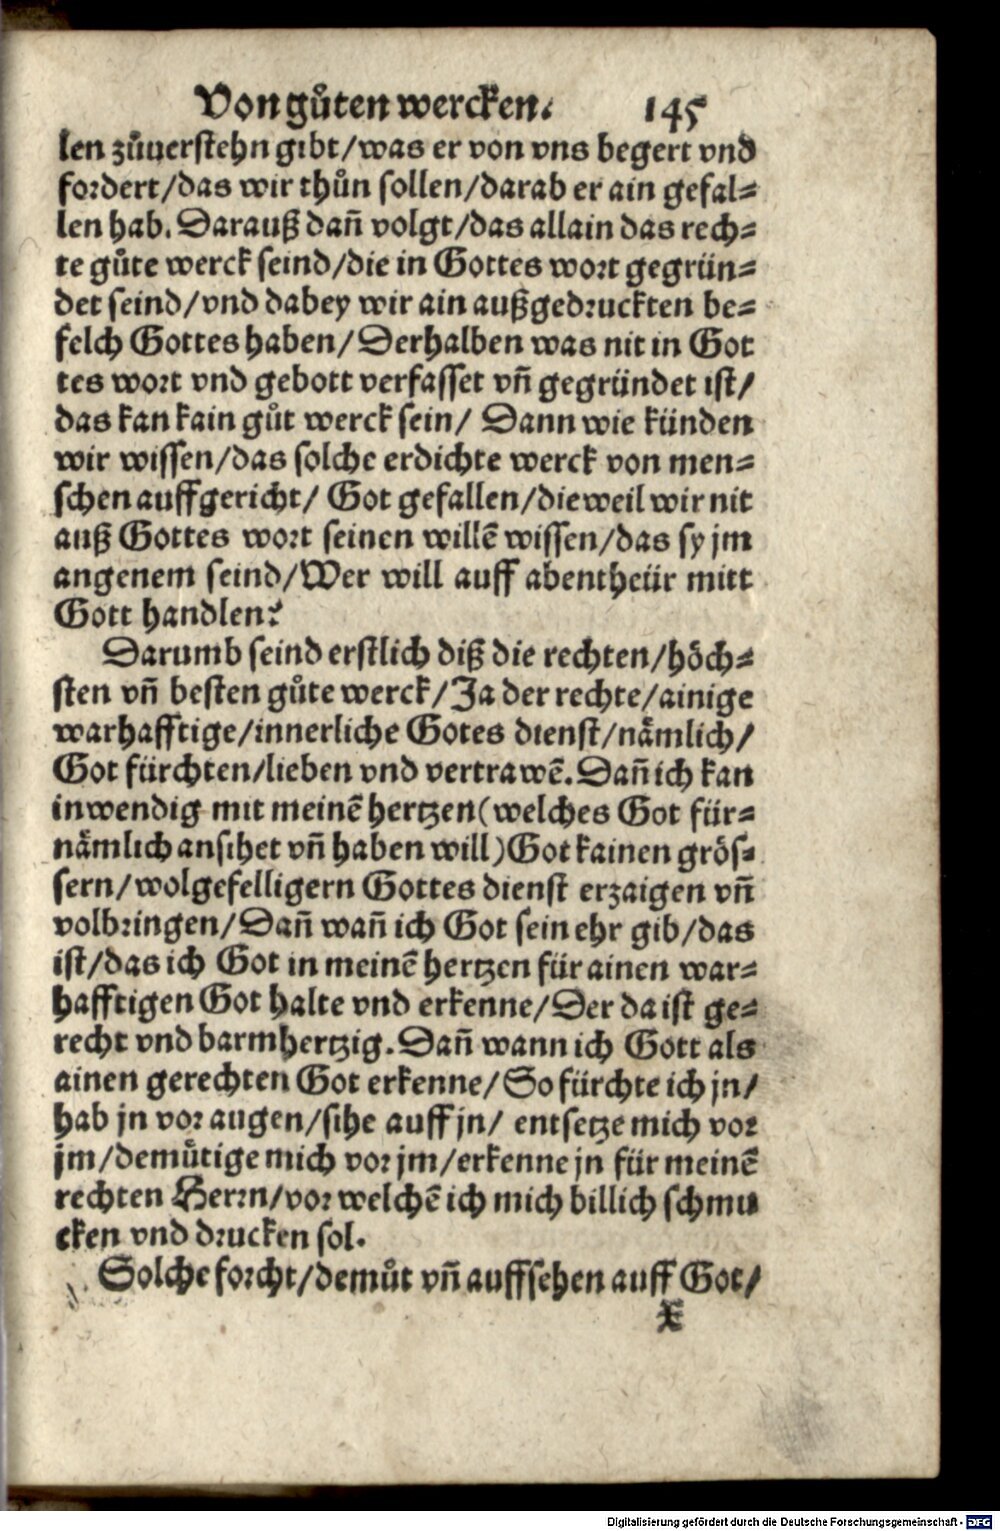 Von gůten wercken. 145
len zůuerstehn gibt/was er von vns begert vnd
fordert/das wir thůn sollen/darab er ain gefal=
len hab. Darauß dañ volgt/das allain das rech=
te gůte werck seind/die in Gottes wort gegrün=
det seind/vnd dabey wir ain außgedruckten be=
felch Gottes haben/Derhalben was nit in Got
tes wort vnd gebott verfasset vñ gegründet ist/
das kan kain gůt werck sein/ Dann wie künden
wir wissen/das solche erdichte werck von men=
schen auffgericht/ Got gefallen/dieweil wir nit
auß Gottes wort seinen willē wissen/das sy jm
angenem seind/Wer will auff abentheür mitt
Gott handlen?
Darumb seind erstlich diß die rechten/höch=
sten vñ besten gůte werck/Ja der rechte/ainige
warhafftige/innerliche Gotes dienst/nämlich/
Got fürchten/lieben vnd vertrawē. Dañ ich kan
inwendig mit meinē hertzen(welches Got für=
nämlich ansihet vñ haben will)Got kainen grös=
sern/wolgefelligern Gottes dienst erzaigen vñ
volbringen/Dañ wañ ich Got sein ehr gib/das
ist/das ich Got in meinē hertzen für ainen war=
hafftigen Got halte vnd erkenne/Der da ist ge=
recht vnd barmhertzig. Dañ wann ich Gott als
ainen gerechten Got erkenne/So fürchte ich jn/
hab jn vor augen/sihe auff jn/ entsetze mich vor
jm/demůtige mich vor jm/erkenne jn für meinē
rechten Herrn/vor welchē ich mich billich schmu
cken vnd drucken sol.
Solche forcht/demůt vñ auffsehen auff Got/
X
Digitalisierung gefördert durch die Deutsche Forschungsgemeinschaft - DFG